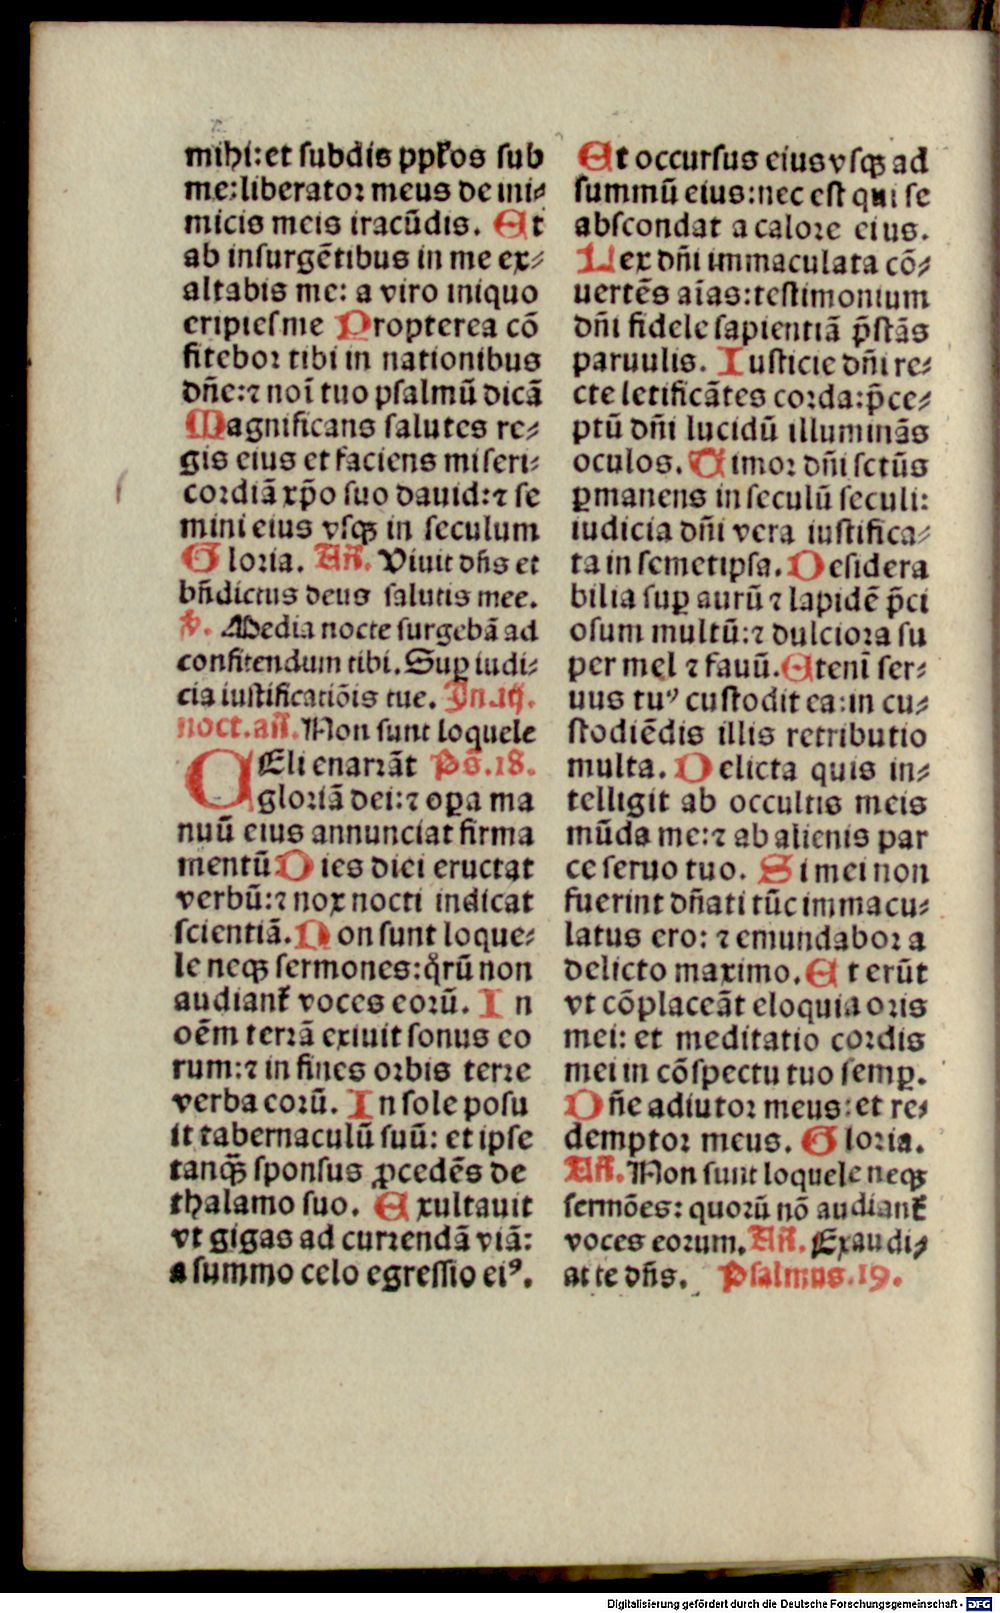 mihi: et subdis pp̄los sub
me: liberator meus de ini⸗
micis meis iracūdis. Et
ab insurgētibus in me ex⸗
altabis me: a viro iniquo
eripies me Propterea cō
fitebor tibi in nationibus
dn̄e: ⁊ noī tuo psalmū dicā
Magnificans salutes re⸗
gis eius et faciens miseri⸗
cordiā xp̄o suo dauid: ⁊ se
mini eius vsqꝫ in seculum
Gloria. Añ. Viuit dn̄s et
bn̄dictus deus salutis mee.
℣. Media nocte surgebā ad
confitendum tibi. Suꝑ iudi⸗
cia iustificatiōis tue. In .iij.
noct. añ. Non sunt loquele
CEli enarrāt Ps̄. 18.
gloriā dei: ⁊ oꝑa ma
nuū eius annunciat firma
mentū Dies diei eructat
verbū: ⁊ nox nocti indicat
scientiā. Non sunt loque⸗
le neqꝫ sermones: qͦrū non
audiant᷑ voces eorū. In
oēm terrā exiuit sonus eo
rum: ⁊ in fines orbis terre
verba eorū. In sole posu
it tabernaculū suū: et ipse
tanqꝫ̄ sponsus ꝓcedēs de
thalamo suo. Exultauit
vt gigas ad currendā viā:
a summo celo egressio eiꝰ.
Et occursus eius vsqꝫ ad
summū eius: nec est qui se
abscondat a calore eius.
Lex dn̄i immaculata cō⸗
uertēs aīas: testimonium
dn̄i fidele sapientiā p̄stās
paruulis. Iusticie dn̄i re⸗
cte letificātes corda: p̄ce⸗
ptū dn̄i lucidū illuminās
oculos. Timor dn̄i sctūs
ꝑmanens in seculū seculi:
iudicia dn̄i vera iustifica⸗
ta in semetipsa. Desidera
bilia suꝑ aurū ⁊ lapidē p̄ci
osum multū: ⁊ dulciora su
per mel ⁊ fauū. Etenī ser⸗
uus tuꝰ custodit ea: in cu⸗
stodiēdis illis retributio
multa. Delicta quis in⸗
telligit ab occultis meis
mūda me: ⁊ ab alienis par
ce seruo tuo. Si mei non
fuerint dn̄ati tūc immacu⸗
latus ero: ⁊ emundabor a
delicto maximo. Et erūt
vt cōplaceāt eloquia oris
mei: et meditatio cordis
mei in cōspectu tuo semꝑ.
Dn̄e adiutor meus: et re⸗
demptor meus. Gloria.
Añ. Non sunt loquele neqꝫ
sermōes: quorū nō audiant᷑
voces eorum. Añ. Exaudi⸗
at te dn̄s. Psalmus. 19.
Digitalisierung gefördert durch die Deutsche Forschungsgemeinschaft - DFG